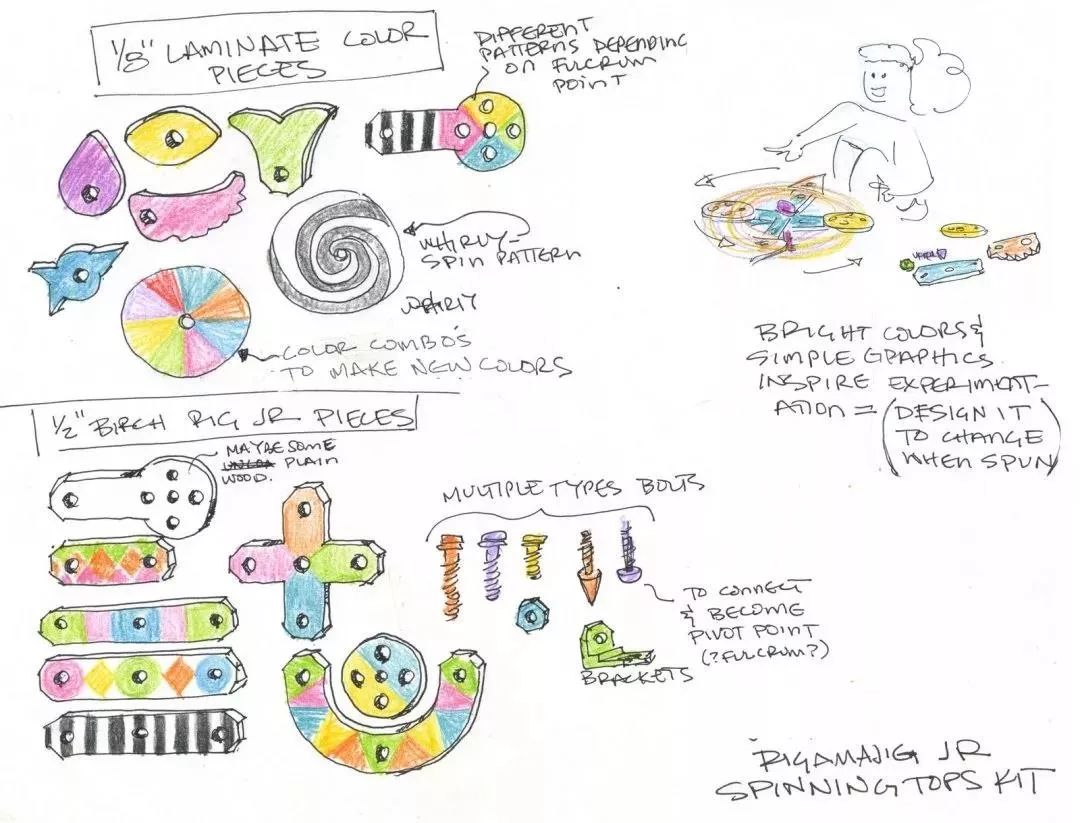 1/8" LAMINATE COLOR
PIECES
DIFFERENT
PATTERNS DEPENDING
ON FULCRUM
POINT
WHIRLY-
SPIN PATTERN
WHIRLY
COLOR COMBO'S
TO MAKE NEW COLORS
BRIGHT COLORS &
SIMPLE GRAPHICS
INSPIRE EXPERIMENT-
ATION = (DESIGN IT
TO CHANGE
WHEN SPUN)
1/2" BIRCH RIG JR PIECES
MAYBE SOME
PLAIN
WOOD.
MULTIPLE TYPES BOLTS
TO CONNECT
& BECOME
PIVOT POINT
(?FULCRUM?)
BRACKETS
RIGAMAJIG JR
SPINNING TOPS KIT